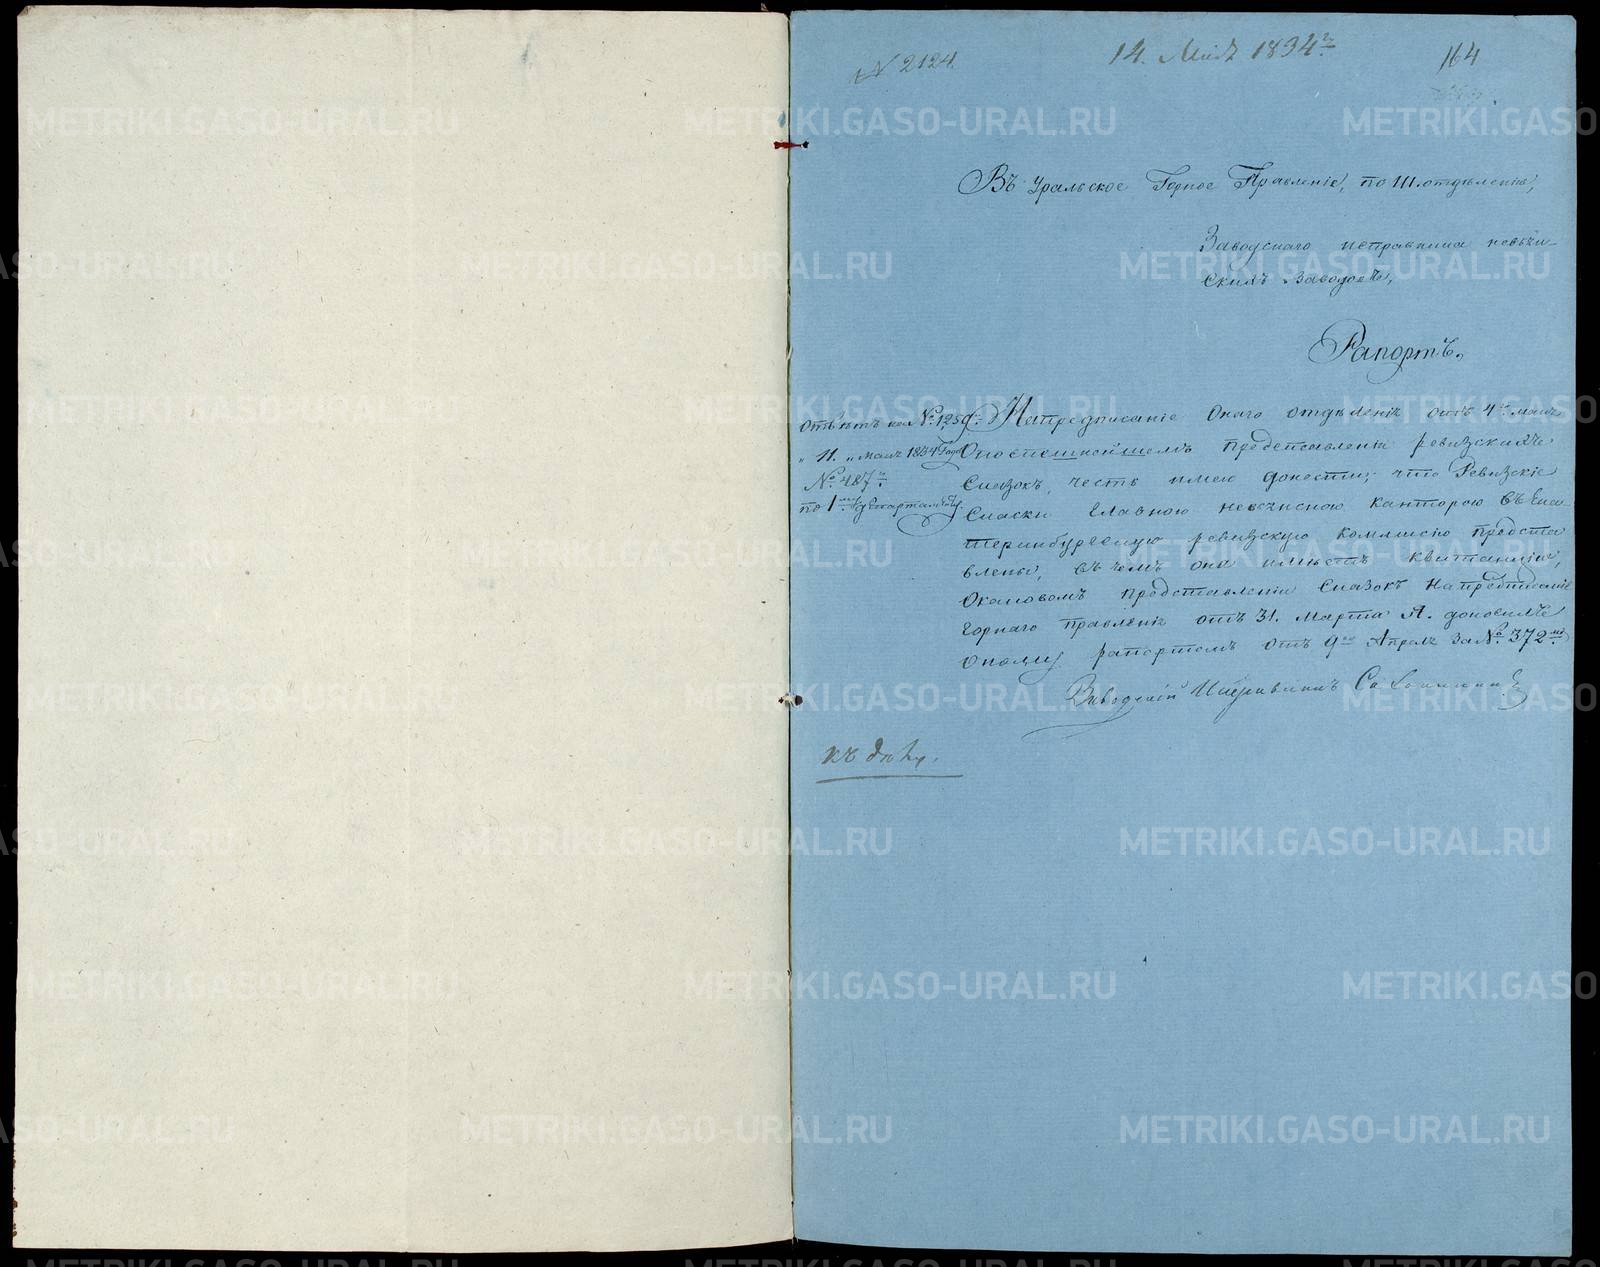 № 2124.
14. Мая 1834 г.
164
Въ Уральское Горное Правленіе, по III. отдѣленію,
Заводскаго исправника невьян-
скихъ заводовъ,
Рапортъ.
Отвѣтъ на № 1259.
„ 11. „ мая 1834 Года
№ 487.
по 1му Департаменту.
На предписаніе онаго отдѣленія отъ 4го мая
О поспешнейшемъ представленіи ревизскихъ
Сказокъ, честь имею донести; что Ревизскіе
Сказки Главною невьянскою канторою въ Ека-
теринбургскую ревизскую коммисію предста
влены, въ чемъ она имѣетъ квитанцію,
О каковомъ представленіи Сказокъ На предписаніе
Горнаго правленія отъ 31. Марта Я. доносилъ
оному рапортомъ отъ 9го Апреля за № 372мъ
Заводскій Исправникъ
къ дѣлу.
METRIKI.GASO-URAL.RU